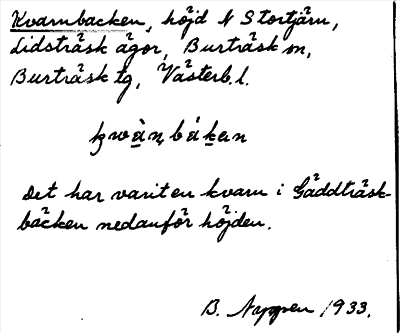 Kvarnbacken, höjd N Stortjärn,
Lidsträsk ägor, Burträsk sn,
Burträsk tg, Västerb. l.
Det har varit en kvarn i Gäddträsk-
bäcken nedanför höjden.
B. Nappen 1933.